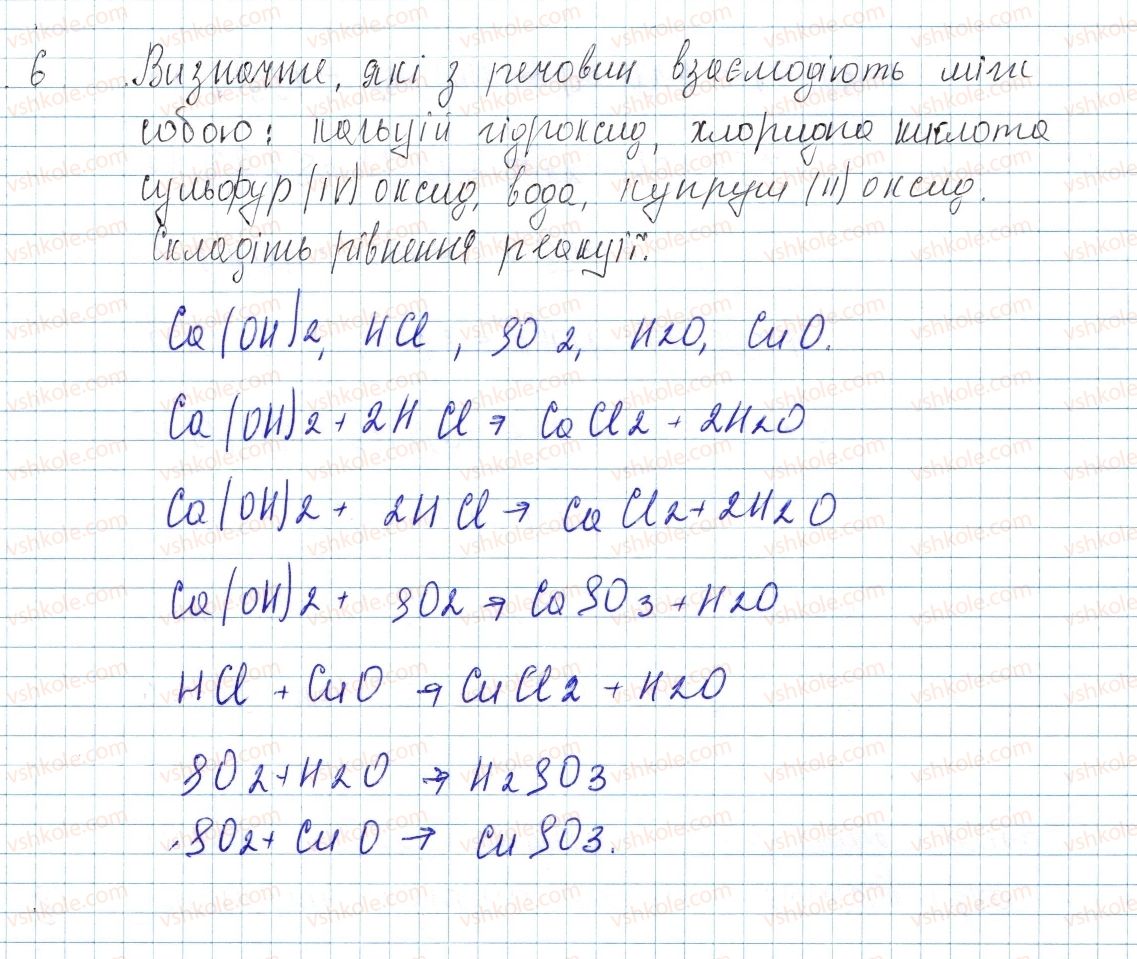 6 Визначте, які з речовин взаємодіють між
собою: кальцій гідроксид, хлоридна кислота
сульфур (IV) оксид, вода, купрум (II) оксид.
Складіть рівнення реакції.
Ca(OH)2, HCl, SO2, H2O, CuO.
Ca(OH)2 + 2HCl → CaCl2 + 2H2O
Ca(OH)2 + 2HCl → CaCl2 + 2H2O
Ca(OH)2 + SO2 → CaSO3 + H2O
HCl + CuO → CuCl2 + H2O
SO2 + H2O → H2SO3
SO2 + CuO → CuSO3.